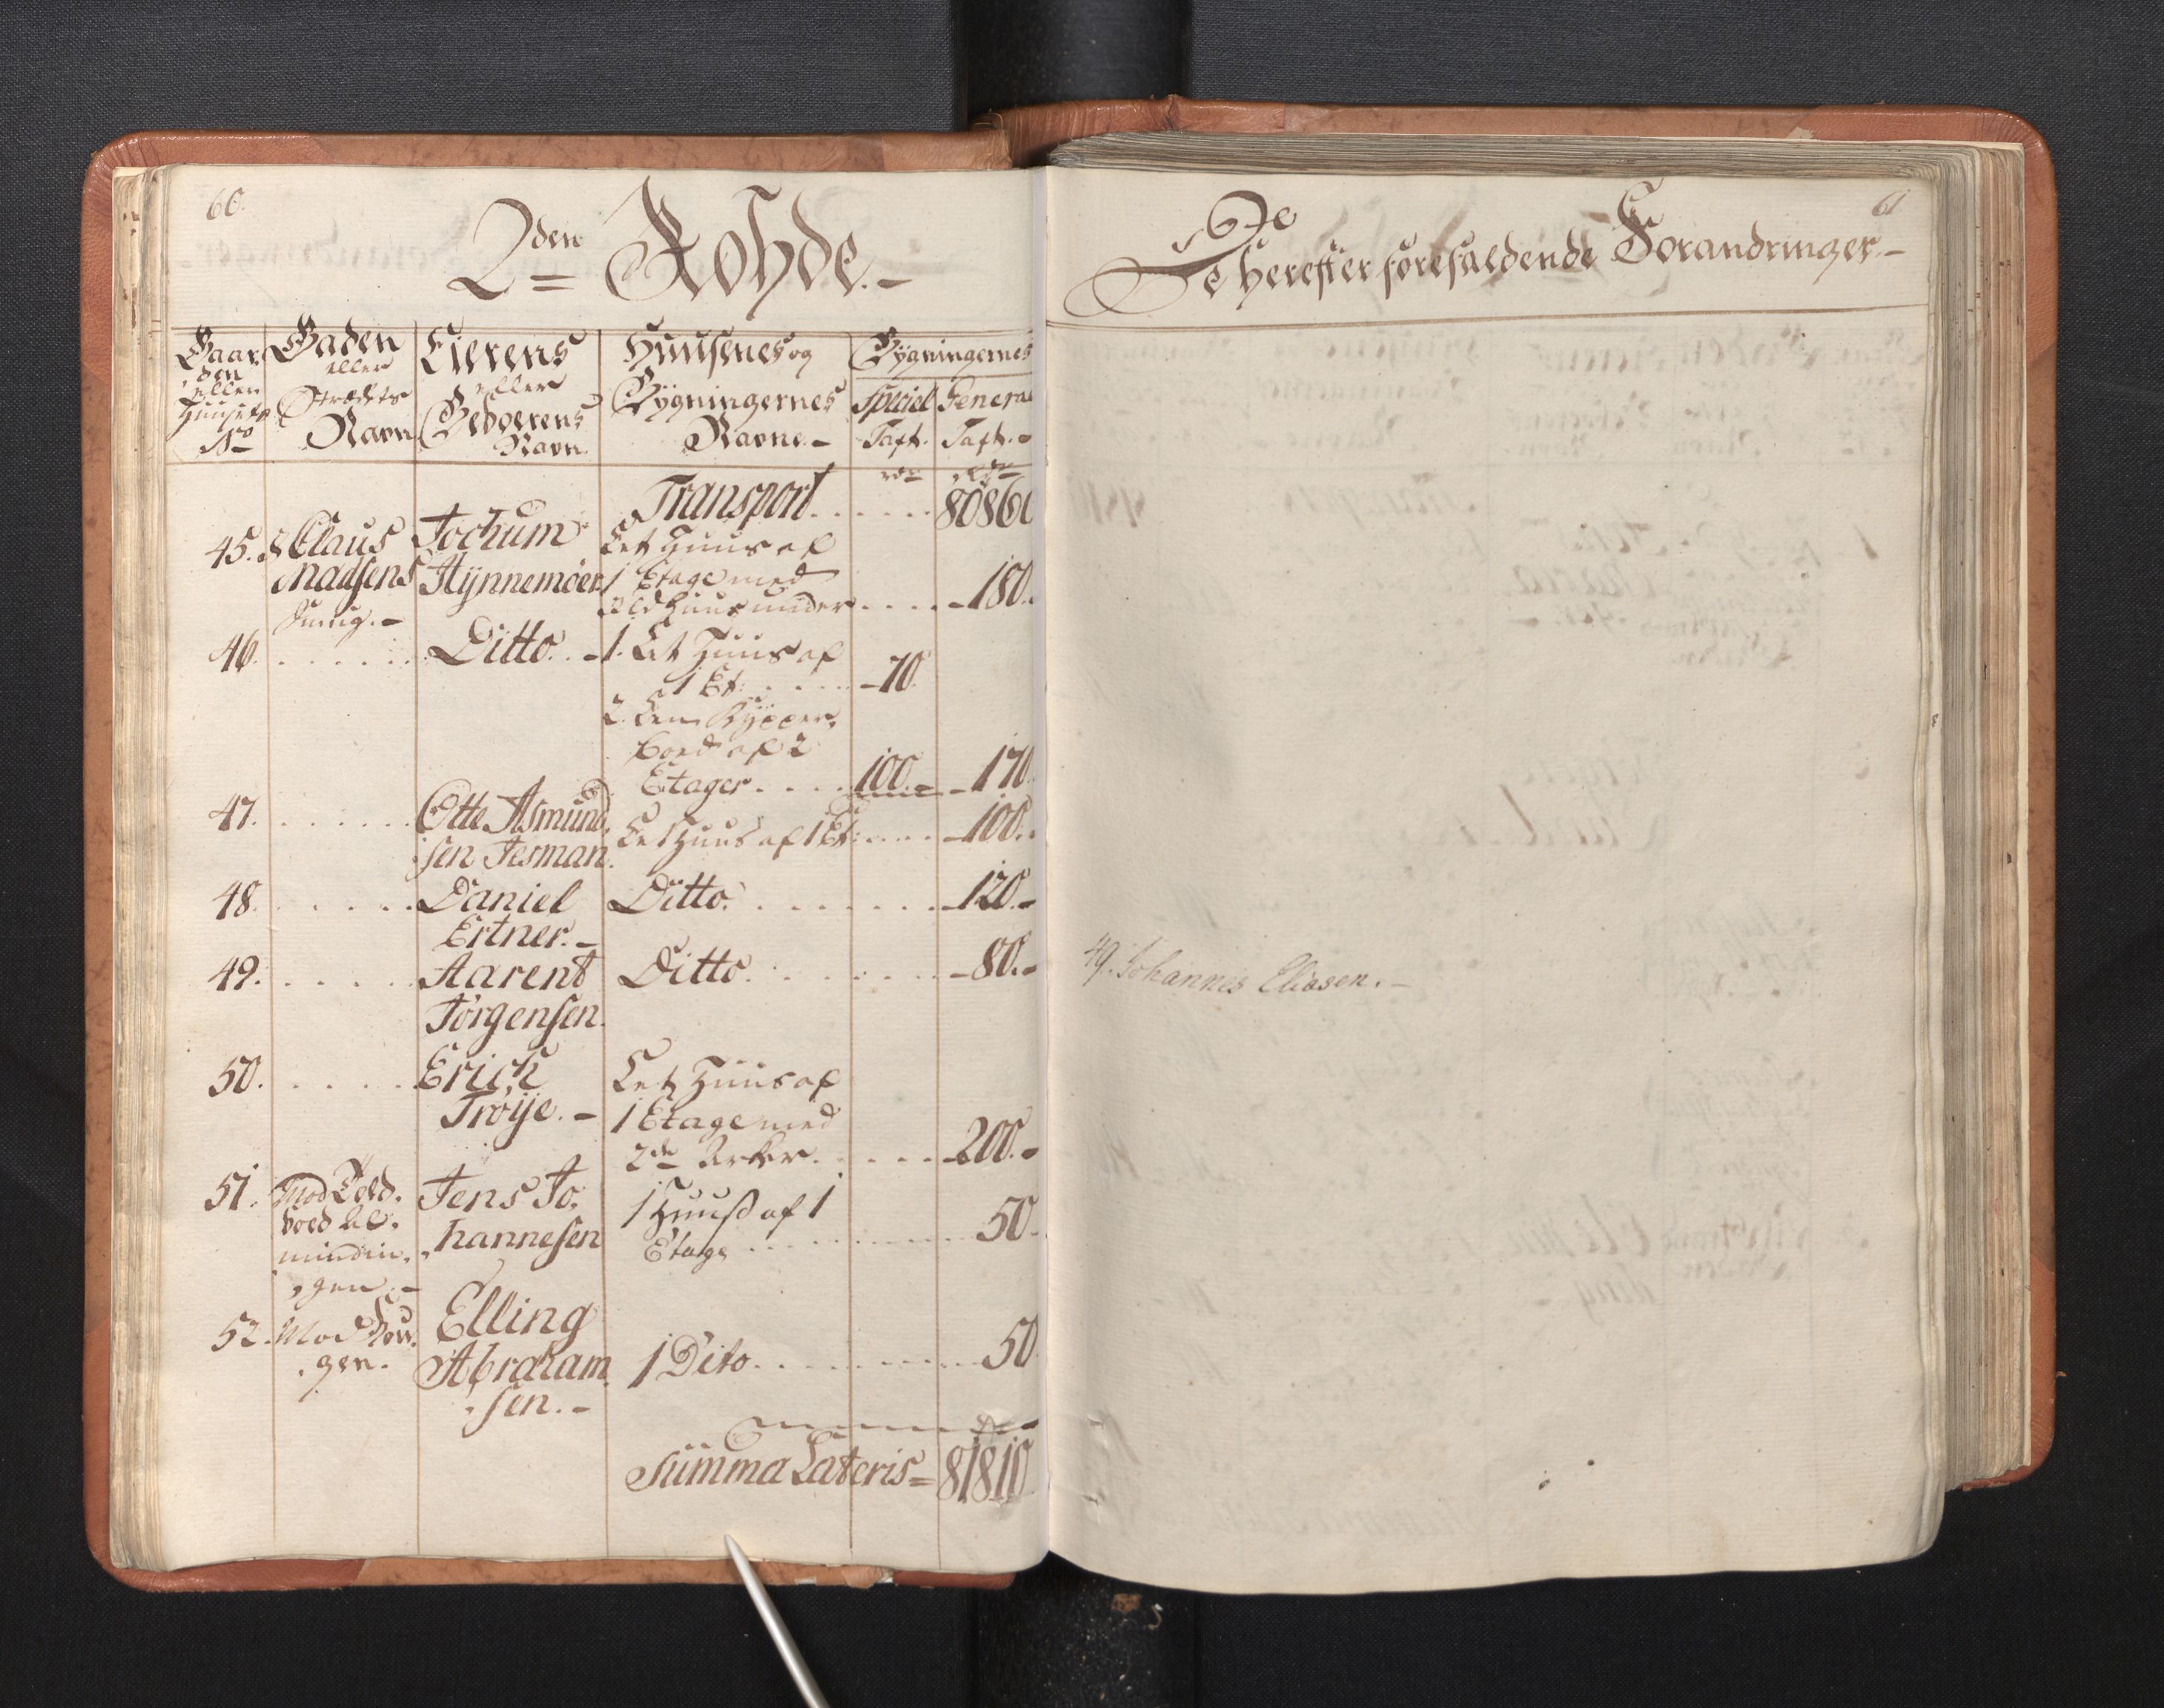 60.
2den Rohde.-
Gaar Gaden Eierens Huusenes og Bygningernes
den eller eller Bygningernes Speciel General
eller Strædets Beboerens Navne.- Taxt. Taxt.-
Huusets Navn Navn.
No
rdr rdr
Transport. . . . . . 80860
45. Claus Jochum Eet Huus af
Madsens Stynnemöer 1 Etage med
Smug.- Ild Huus under . . . . - 180.
46. . . . . . . Ditto. . - 1. Eet Huus af
1 Et: . . . . - 70.
2. Een
boed af 2
Etager. . . . 100. - 170.
47. . . . . . . Otte Asmund
Eet Huus af 1 Et: . . . . - 100.
sen Jesman.
48. . . . . . Daniel Ditto. . . . . . . . - 120.-
Ertner.-
49. . . . . . Aarent Ditto. . . . . . . . - 80.-
Jörgensen.
50. . . . . Erich Eet Huus af
Tröije.- 1 Etage med
2de Arker. . . . . - 200.-
51. Mod Told- Jens Jo- 1 Huuß af 1
boed Al- hannesen Etage . . . . . . . . 50.
mindin-
gen.-
52. Elling
gen. Abraham 1 Dito. . . . . . . . 50.
sen.-
Summa Lateris = 81810
61
De
De herefter forefaldende Forandringer.-
49. Johannes Eliasen.-